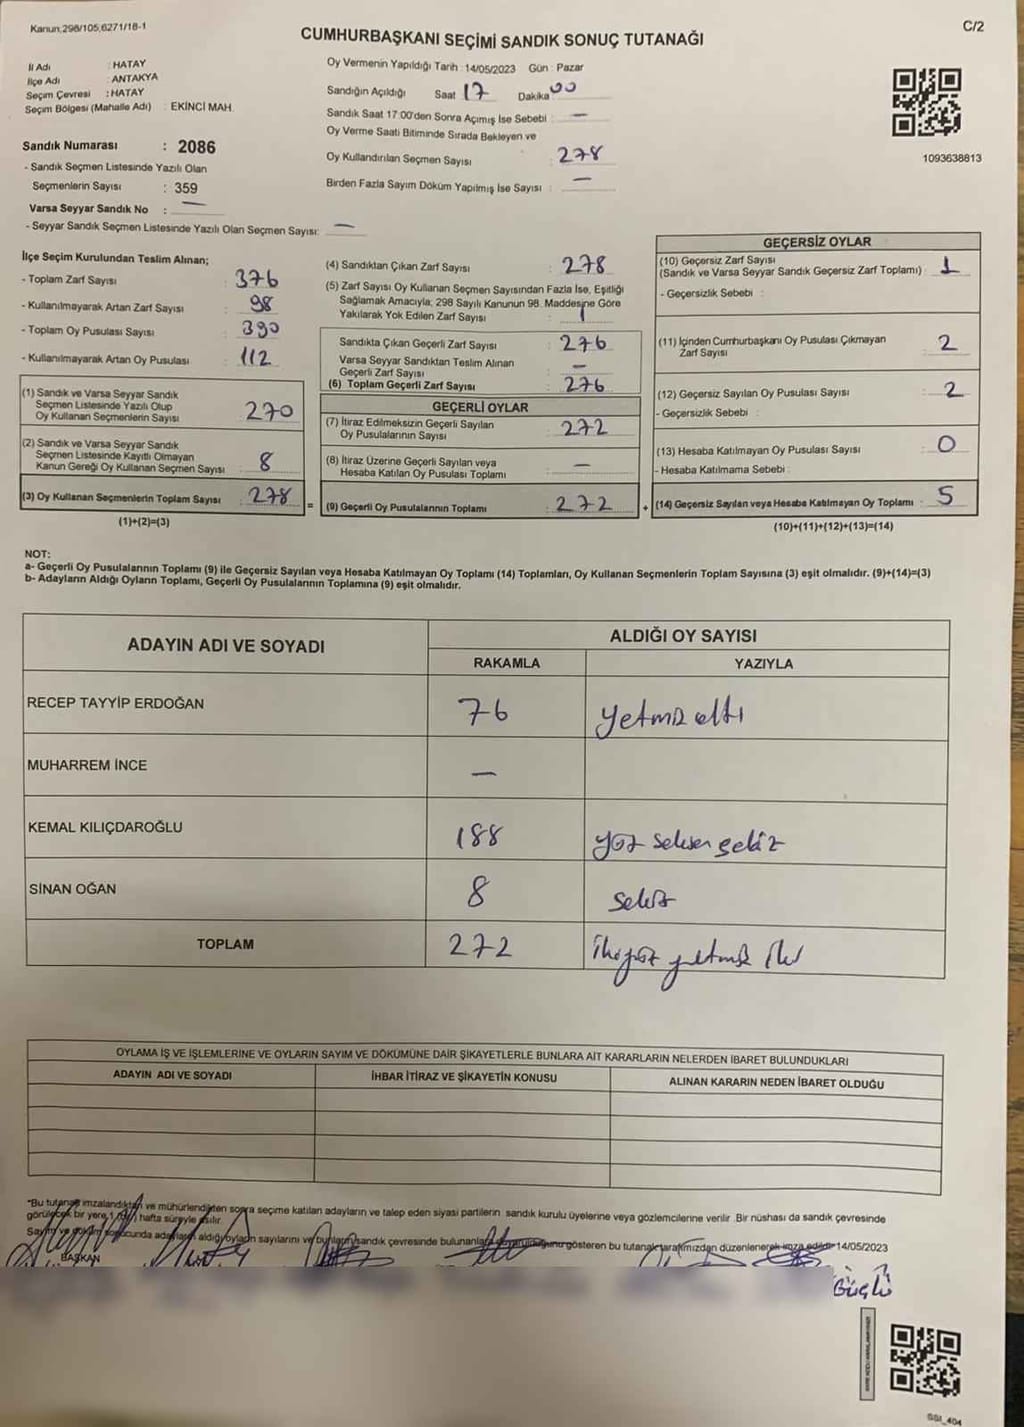 Kanun,298/105,6271/18-1
C/2
CUMHURBAŞKANI SEÇİMİ SANDIK SONUÇ TUTANAĞI
İl Adı : HATAY
İlçe Adı : ANTAKYA
Seçim Çevresi : HATAY
Seçim Bölgesi (Mahalle Adı) : EKİNCİ MAH.
Sandık Numarası : 2086
- Sandık Seçmen Listesinde Yazılı Olan
Seçmenlerin Sayısı : 359
Varsa Seyyar Sandık No : —
- Seyyar Sandık Seçmen Listesinde Yazılı Olan Seçmen Sayısı: —
Oy Vermenin Yapıldığı Tarih : 14/05/2023 Gün : Pazar
Sandığın Açıldığı Saat 17 Dakika 00
Sandık Saat 17.00'den Sonra Açımış İse Sebebi : —
Oy Verme Saati Bitiminde Sırada Bekleyen ve
Oy Kullandırılan Seçmen Sayısı : 278
Birden Fazla Sayım Döküm Yapılmış İse Sayısı : —
1093638813
İlçe Seçim Kurulundan Teslim Alınan;
- Toplam Zarf Sayısı : 376
- Kullanılmayarak Artan Zarf Sayısı : 98
- Toplam Oy Pusulası Sayısı : 390
- Kullanılmayarak Artan Oy Pusulası : 112
(1) Sandık ve Varsa Seyyar Sandık
Seçmen Listesinde Yazılı Olup
Oy Kullanan Seçmenlerin Sayısı : 270
(2) Sandık ve Varsa Seyyar Sandık
Seçmen Listesinde Kayıtlı Olmayan
Kanun Gereği Oy Kullanan Seçmen Sayısı : 8
(3) Oy Kullanan Seçmenlerin Toplam Sayısı : 278
(1)+(2)=(3)
(4) Sandıktan Çıkan Zarf Sayısı : 278
(5) Zarf Sayısı Oy Kullanan Seçmen Sayısından Fazla İse, Eşitliği
Sağlamak Amacıyla; 298 Sayılı Kanunun 98. Maddesine Göre
Yakılarak Yok Edilen Zarf Sayısı : 1
Sandıkta Çıkan Geçerli Zarf Sayısı : 276
Varsa Seyyar Sandıktan Teslim Alınan
Geçerli Zarf Sayısı : —
(6) Toplam Geçerli Zarf Sayısı : 276
GEÇERLİ OYLAR
(7) İtiraz Edilmeksizin Geçerli Sayılan
Oy Pusulalarının Sayısı : 272
(8) İtiraz Üzerine Geçerli Sayılan veya
Hesaba Katılan Oy Pusulası Toplamı : —
= (9) Geçerli Oy Pusulalarının Toplamı : 272
GEÇERSİZ OYLAR
(10) Geçersiz Zarf Sayısı
(Sandık ve Varsa Seyyar Sandık Geçersiz Zarf Toplamı) : 1
- Geçersizlik Sebebi :
(11) İçinden Cumhurbaşkanı Oy Pusulası Çıkmayan
Zarf Sayısı : 2
(12) Geçersiz Sayılan Oy Pusulası Sayısı : 2
- Geçersizlik Sebebi :
(13) Hesaba Katılmayan Oy Pusulası Sayısı : 0
- Hesaba Katılmama Sebebi :
+ (14) Geçersiz Sayılan veya Hesaba Katılmayan Oy Toplamı : 5
(10)+(11)+(12)+(13)=(14)
NOT:
a- Geçerli Oy Pusulalarının Toplamı (9) ile Geçersiz Sayılan veya Hesaba Katılmayan Oy Toplamı (14) Toplamları, Oy Kullanan Seçmenlerin Toplam Sayısına (3) eşit olmalıdır. (9)+(14)=(3)
b- Adayların Aldığı Oyların Toplamı, Geçerli Oy Pusulalarının Toplamına (9) eşit olmalıdır.
ADAYIN ADI VE SOYADI ALDIĞI OY SAYISI
RAKAMLA YAZIYLA
RECEP TAYYİP ERDOĞAN 76 yetmiş altı
MUHARREM İNCE —
KEMAL KILIÇDAROĞLU 188 yüz seksen sekiz
SİNAN OĞAN 8 sekiz
TOPLAM 272 ikiyüz yetmiş iki
OYLAMA İŞ VE İŞLEMLERİNE VE OYLARIN SAYIM VE DÖKÜMÜNE DAİR ŞİKAYETLERLE BUNLARA AİT KARARLARIN NELERDEN İBARET BULUNDUKLARI
ADAYIN ADI VE SOYADI İHBAR İTİRAZ VE ŞİKAYETİN KONUSU ALINAN KARARIN NEDEN İBARET OLDUĞU
*Bu tutanak imzalandıktan ve mühürlendikten sonra seçime katılan adayların ve talep eden siyasi partilerin sandık kurulu üyelerine veya gözlemcilerine verilir. Bir nüshası da sandık çevresinde
görülecek bir yere 1 hafta süreyle asılır.
Sayım ve döküm sonucunda adayların aldığı oyların sayılarını ve bunların sandık çevresinde bulunanlara gösteren bu tutanak tarafımızdan düzenlenerek imza edildi. 14/05/2023
BAŞKAN
Güçlü